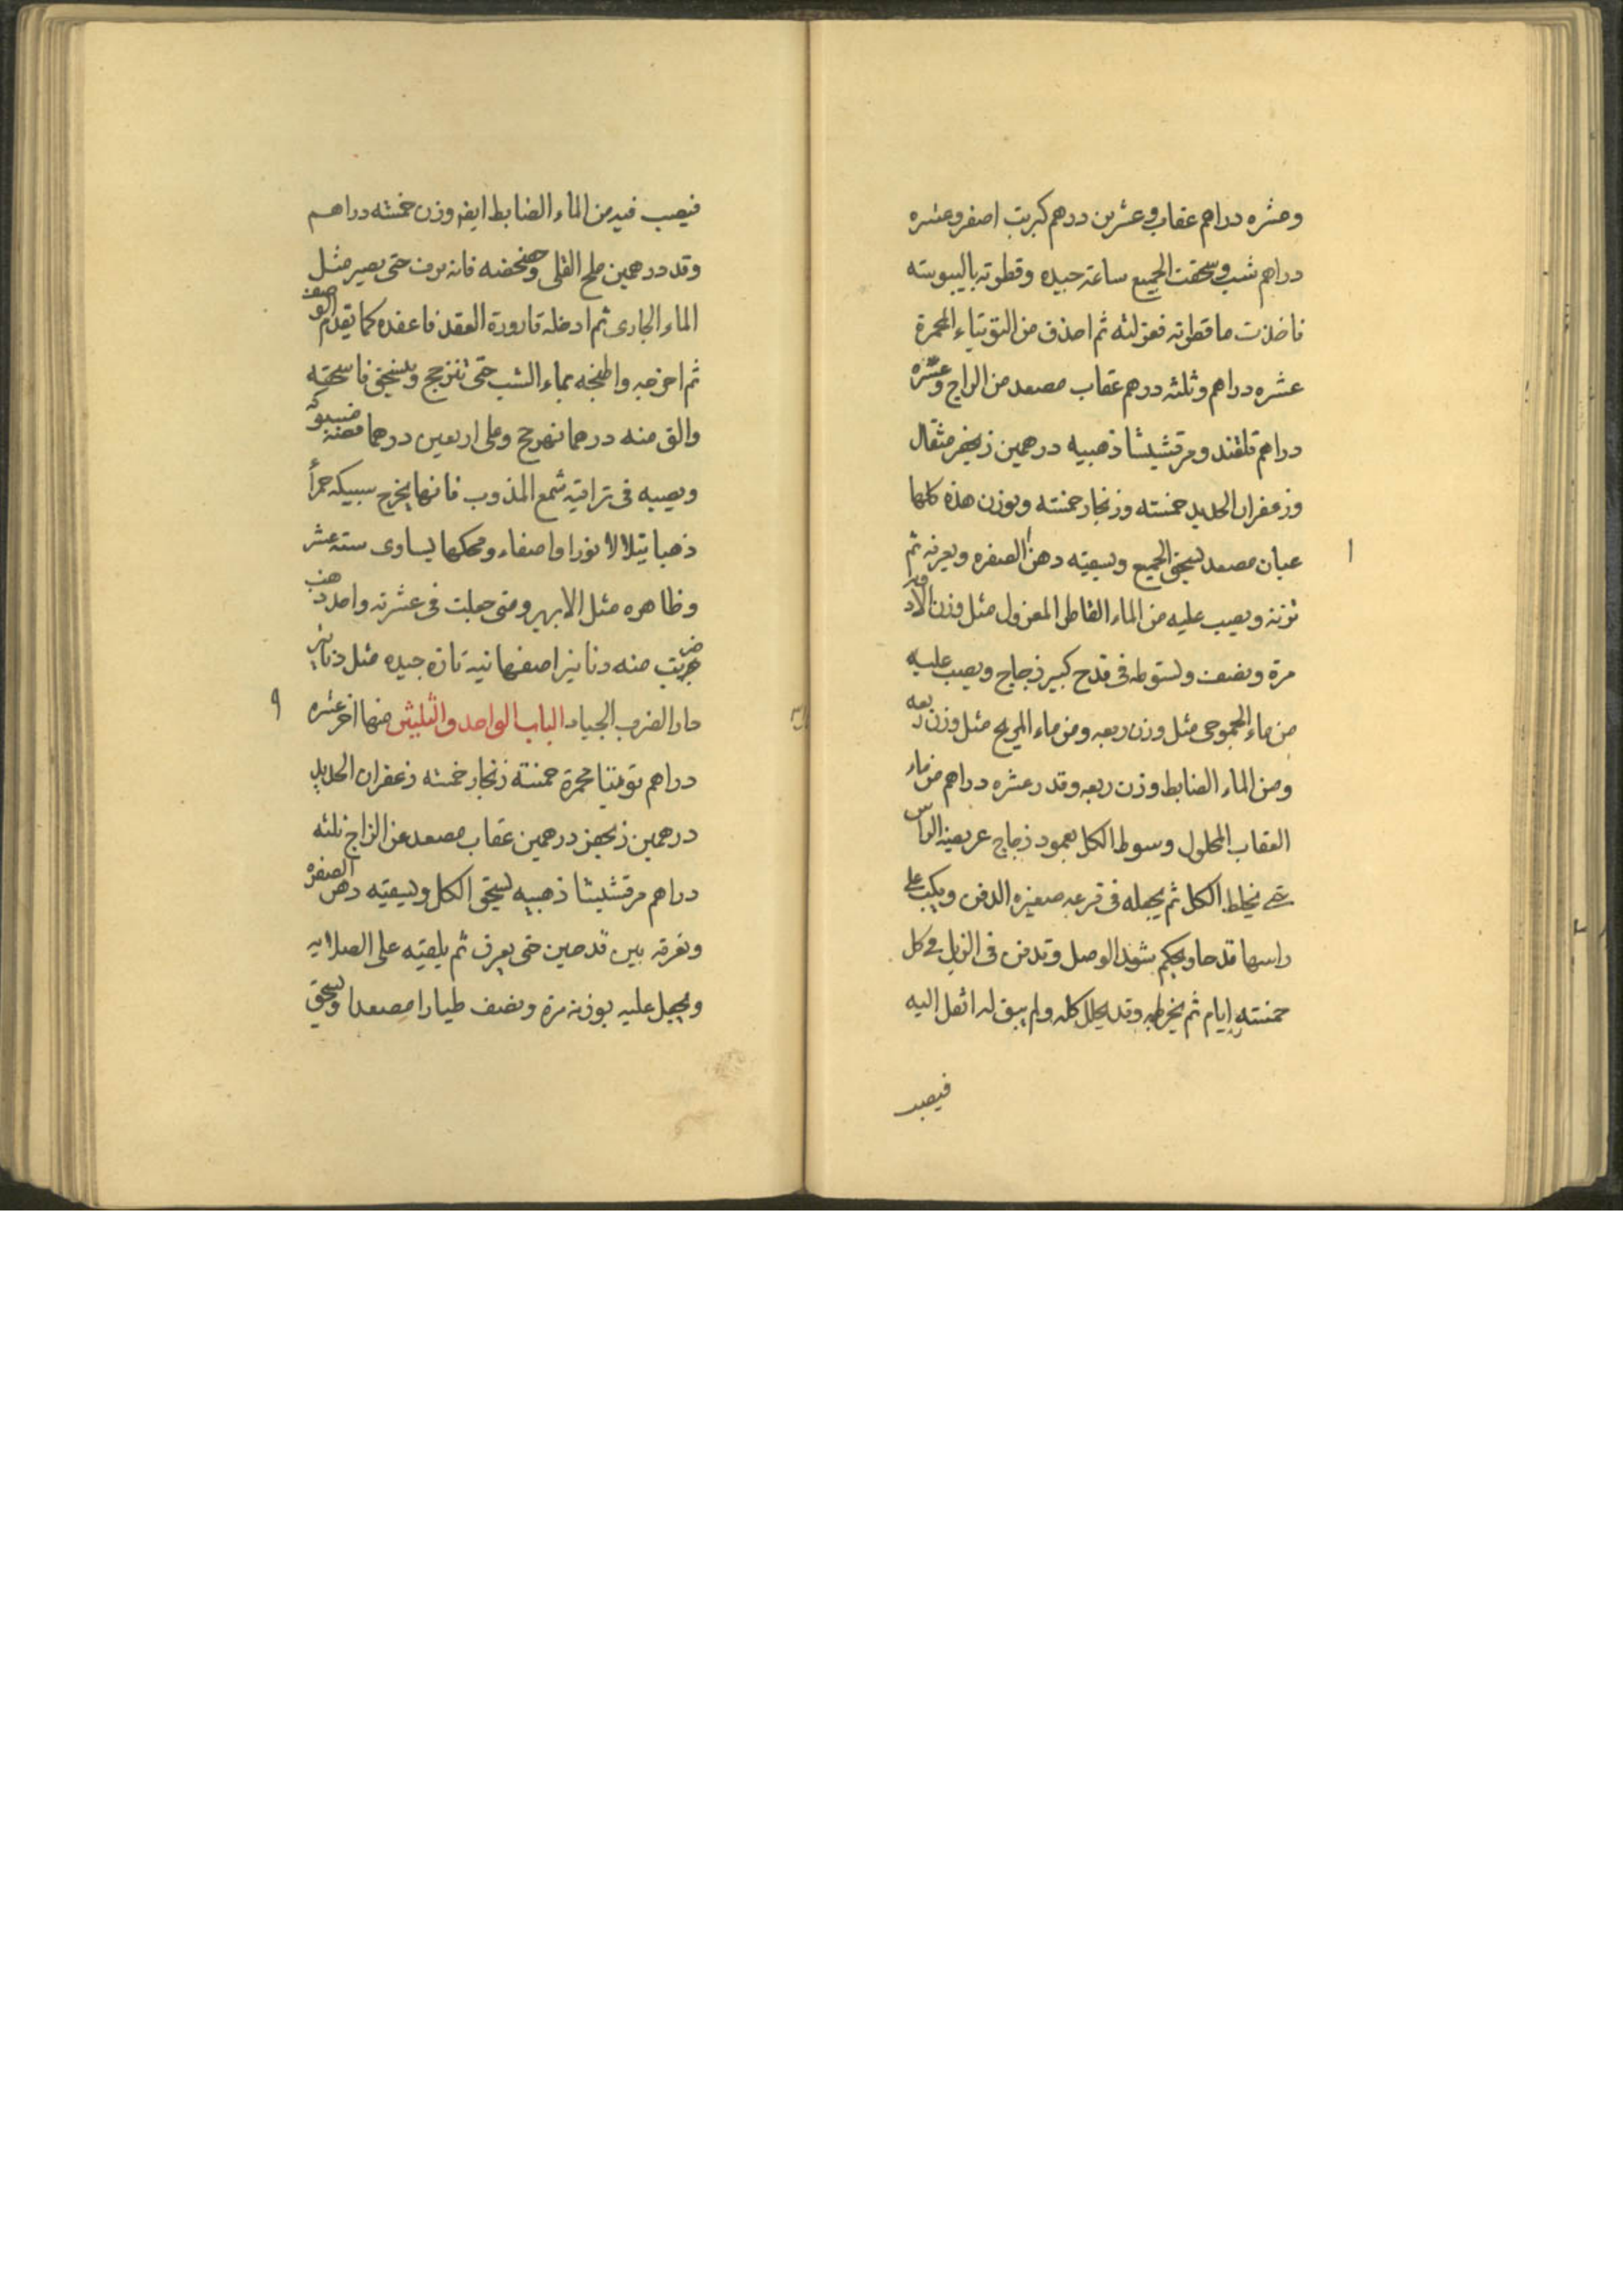 وعشره دراهم عقاب وعشرين درهم كبريت اصفر وعشره
دراهم شب وسحقت الجميع ساعة جيده وقطرته باليبوسته
فاخذت ما قطرته فعزلته ثم اخذت من التوتياء المحمرة
عشره دراهم وثلثه درهم عقاب مصعد من الزاج وعشره
دراهم قلقند ومرقشيشا ذهبيه درهمين زنجفر مثقال
وزعفران الحديد خمسته وزنجار خمسته وبوزن هذه كلها
عبان مصعد يسحق الجميع ويسقيه دهن الصفره ويعرفه ثم
تزنه ويصب عليه من الماء القاطر المعزول مثل وزن الادويه
مرة ونصف ولستوطه فى قدح كبير زجاج ويصب عليه
من ماء الجموحى مثل وزن ربعه ومن ماء المريح مثل وزن ربعه
ومن الماء الضابط وزن ربعه وقدر عشره دراهم من ماء
العقاب المحلول وسوط الكل بعمود زجاج عريضة الراس
حتى يختلط الكل ثم يجعله فى قرعه صغيره الدفن ويكب على
راسها قدحا ويحكم شويد الوصل وتدفن فى الزبل فى كل
خمسته ايام ثم يخرجه وقد يحلل كله ولم يبق له اثقل اليه
فيصب
فيصب فيه من الماء الضابط ايضا وزن خمسته دراهم
وقد درهمين ملح القلى وخضخضه فانه يرف حتى يصير مثل
الماء الجارى ثم ادخله قارورة العقد فاعقده كما تقدم الوصف
ثم اخرجه واطبخه بماء الشب حتى تنزجج ويسحق فاسحقه
والق منه درهما نهرجج وعلى اربعين درهما فضه مسبوكه
ويصبه فى تراقيته شمع المذوب فانها يخرج سبيكه حمرأ
ذهبا يتلالا نورا واصفاء ومحكها يساوى سته عشر
وظاهره مثل الابهر ومتى حملت فى عشرته واحد ذهب
ضربت منه دنانيرا صفهانيه تازه جيده مثل دنانير
دار الضرب الجياد الباب الواحد والثلثين منها اخر عشره
دراهم توتيا محمرة خمسته زنجار خمسته زعفران الحديد
درهمين زنجفر درهمين عقاب مصعد عن الزاج ثلثه
دراهم مرقشيشا ذهبيه يسحق الكل ويسقيه دهن الصفره
وتغرقه بين قدحين حتى يعرف ثم يلقيه على الصلايه
ويحمل عليه بوزنه مرة ونصف طيارا مصعدا ويسحق